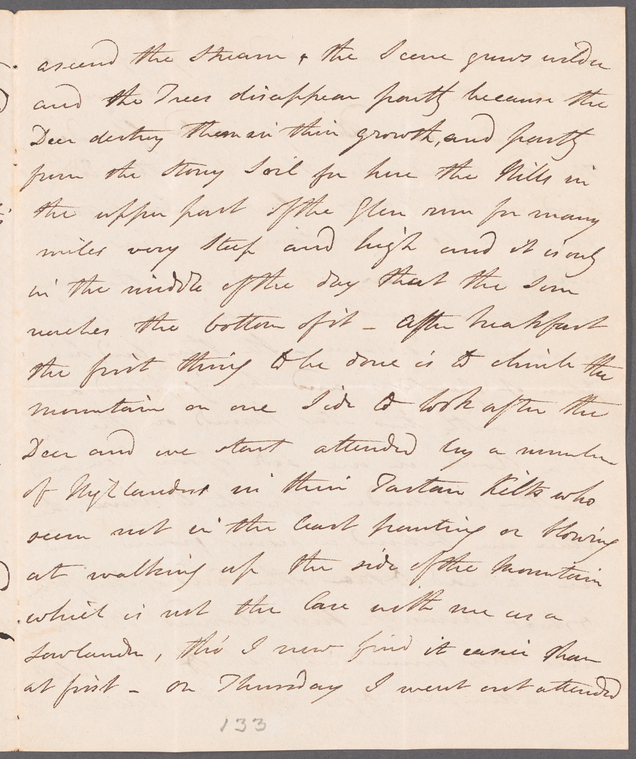 ascend the Stream & the Scene grows wilder
and the Trees disappear partly because the
Deer destroy them in their growth, and partly
from the stony Soil for here the Hills in
the upper part of the Glen run for many
miles very steep and high and it is only
in the middle of the day that the Sun
reaches the bottom of it – After breakfast
the first thing to be done is to climb the
mountain on one Side to look after the
Deer and we start attended by a number
of Highlanders in their Tartan Kilts who
seem not in the least panting or blowing
at walking up the side of the Mountain
which is not the Case with me as a
Lowlander, tho' I now find it easier than
at first – on Thursday I went out attended
133